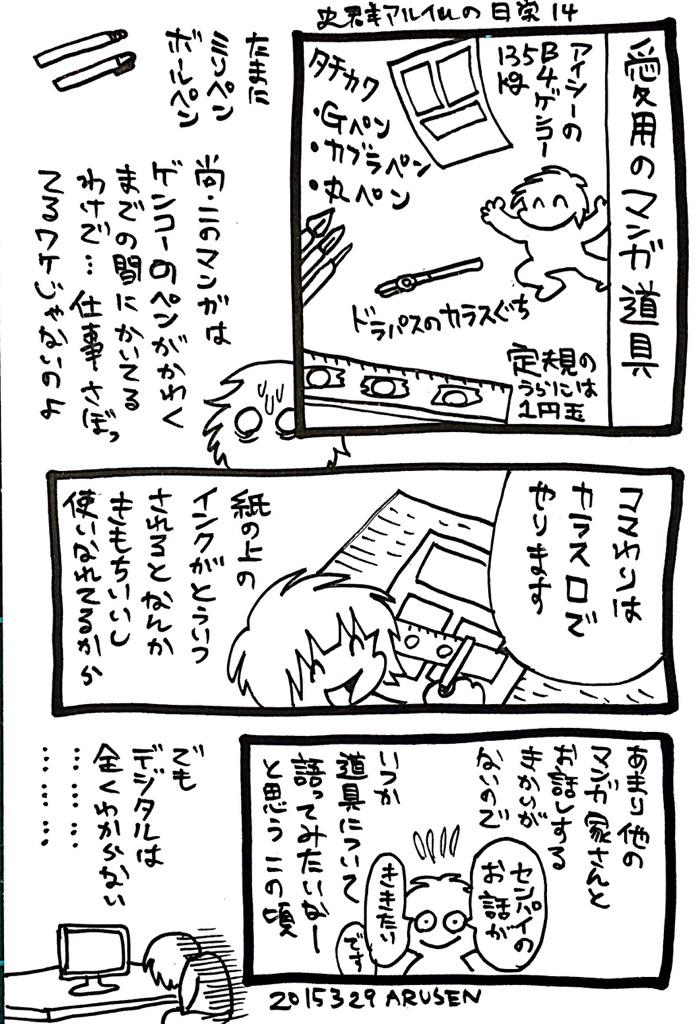 史君キアルイルの日常 14
愛用のマンガ道具
アイシーの
B4ゲンコー
135kg
タチカワ
・Gペン
・カブラペン
・丸ペン
ドラパスのカラスぐち
定規の
うらには
1円玉
たまに
ミリペン
ボールペン
尚・このマンガは
ゲンコーのペンがかわく
までの間にかいてる
わけで…仕事さぼっ
てるワケじゃないのよ
コマわりは
カラス口で
やります
紙の上の
インクがとういつ
されるとなんか
きもちいいし
使いなれてるから
あまり他の
マンガ家さんと
お話しする
きかいが
ないので
センパイの
お話が
ききたい
です
いつか
道具について
語ってみたいなー
と思うこの頃
でも
デジタルは
全くわからない
………
………
2015329 ARUSEN